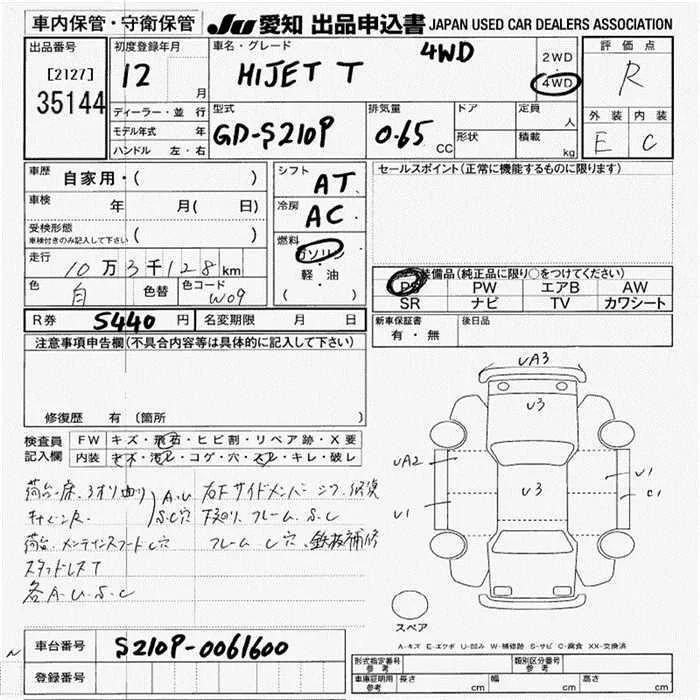 車内保管・守衛保管
JU 愛知 出品申込書 JAPAN USED CAR DEALERS ASSOCIATION
出品番号
[2127]
35144
初度登録年月
12 月
車名・グレード
HIJET T 4WD
2WD
・
4WD
評価点
R
ディーラー・並行
モデル年式 年
ハンドル 左・右
型式
GD-S210P
排気量
0.65 CC
ドア
形状
定員
人
積載
kg
外装 内装
E C
車歴 自家用・( )
車検 年 月( 日)
受検形態
車検付きのみ記入して下さい ( )
走行
10万3千128km
色 白 色替 色コード W09
シフト
AT
冷房
AC
燃料
ガソリン
・
軽・油
( )
セールスポイント(正常に機能するものに限ります)
装備品(純正品に限り○をつけてください)
PS PW エアB AW
SR ナビ TV カワシート
新車保証書
有・無
後日品
R券 5440 円 名変期限 月 日
注意事項申告欄(不具合内容等は具体的に記入して下さい)
修復歴 有(箇所 )
検査員
記入欄
FW キズ・飛石・ヒビ割・リペア跡・X要
内装 キズ・汚レ・コゲ・穴・スレ・キレ・破レ
荷台・床、3オリ曲り
A・U
S・C穴
右F サイドメンバー
修復
下廻り、フレーム、S、C
荷台、メンテナンスフードC穴
フレーム C穴、鉄板補修
スタッドレスT
各A・U・S・C
UA3
U3
UA2
U3
U1
U1
C1
スペア
A-キズ E-エクボ U-凹み W-補修跡 S-サビ C-腐食 XX-交換済
車台番号 S210P-0061600
登録番号
形式指定番号
参考
類別区分番号
参考
車庫証明用
参考
長さ cm 幅 cm 高さ cm